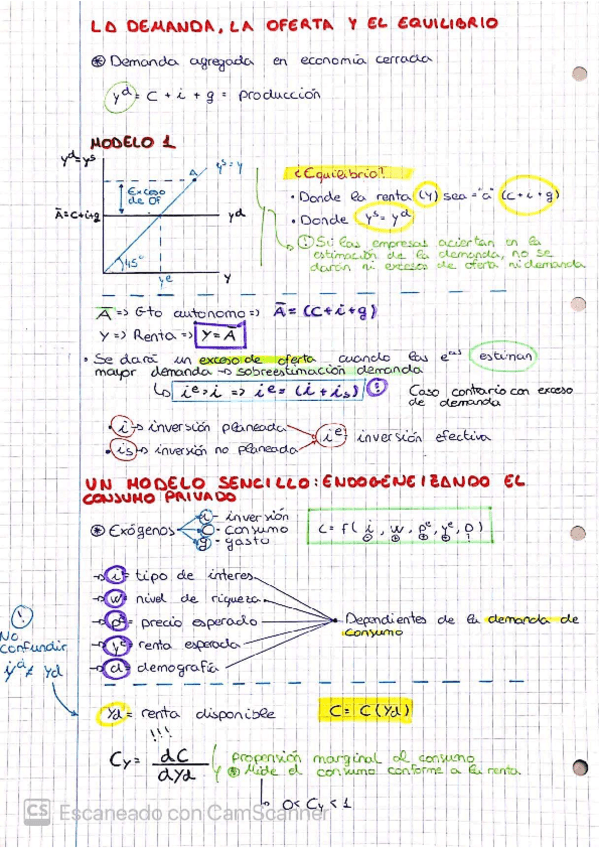 LA DEMANDA, LA OFERTA Y EL EQUILIBRIO
⊛ Demanda agregada en economía cerrada
yᵈ = C + i + g = producción
MODELO 1
yᵈ=yˢ
yˢ=y
A
Exceso de Of
Ā=C+i+g
yd
45°
yᵉ
Y
¿Equilibrio?
• Donde la renta (Y) sea = "a" (C+i+g)
• Donde yˢ = yᵈ
! Si las empresas aciertan en la
estimación de la demanda, no se
darán ni exceso de oferta ni demanda
Ā => Gto autonomo => Ā = (C+i+g)
Y => Renta => Y=Ā
• Se dará un exceso de oferta cuando las eᵃˢ estiman
mayor demanda → sobreestimación demanda
↳ iᵉ>i => iᵉ = (i + is) !
Caso contrario con exceso
de demanda
• i → inversión planeada
• is → inversión no planeada
iᵉ: inversión efectiva
UN MODELO SENCILLO: ENDOGENEIZANDO EL
CONSUMO PRIVADO
⊛ Exógenos
i - inversión
C - consumo
g - gasto
C = f(i, w, pᵉ, yᵉ, D)
→ i = tipo de interes
→ w = nivel de riqueza
→ pᵉ = precio esperado
→ yᵉ = renta esperada
→ d = demografía
• Dependientes de la demanda de
consumo
!
No
confundir
yᵈ ≠ yd
Yd = renta disponible
!!!
C = C(Yd)
Cy = dC / dYd
propensión marginal al consumo
⊛ Mide el consumo conforme a la renta
↳ 0 < Cy < 1
CS Escaneado con CamScanner